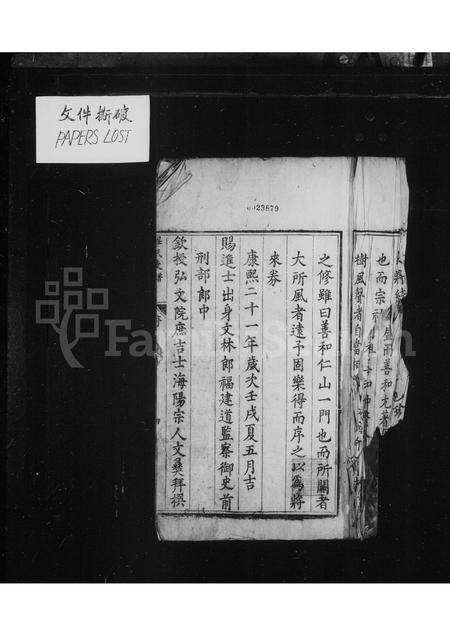 文件撕破
PAPERS LOST
0023879
FamilySearch
也而宗祠
風而善和尤著
樹風聲者自當
之修雖曰善和仁山一門也而所關者
大所風者遠予固樂得而序之以為將
來券
康熙二十一年歲次壬戌夏五月吉
賜進士出身文林郎福建道監察御史前
刑部郎中
欽授弘文院庶吉士海陽宗人文彝拜撰